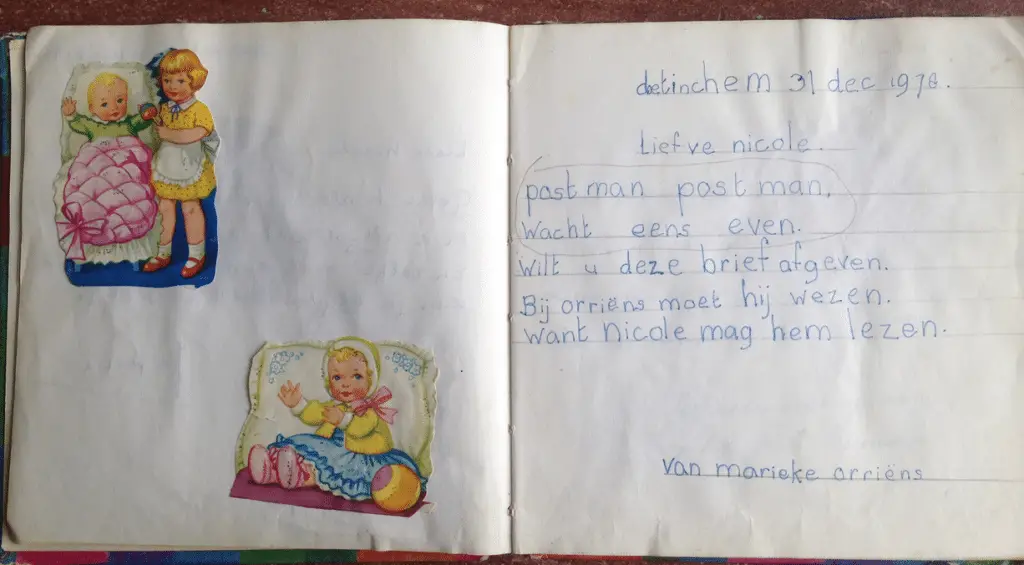 doetinchem 31 dec 1976.
Liefve nicole.
post man post man.
Wacht eens even.
Wilt u deze brief afgeven.
Bij orriëns moet hij wezen.
want nicole mag hem lezen.
van marieke orriëns